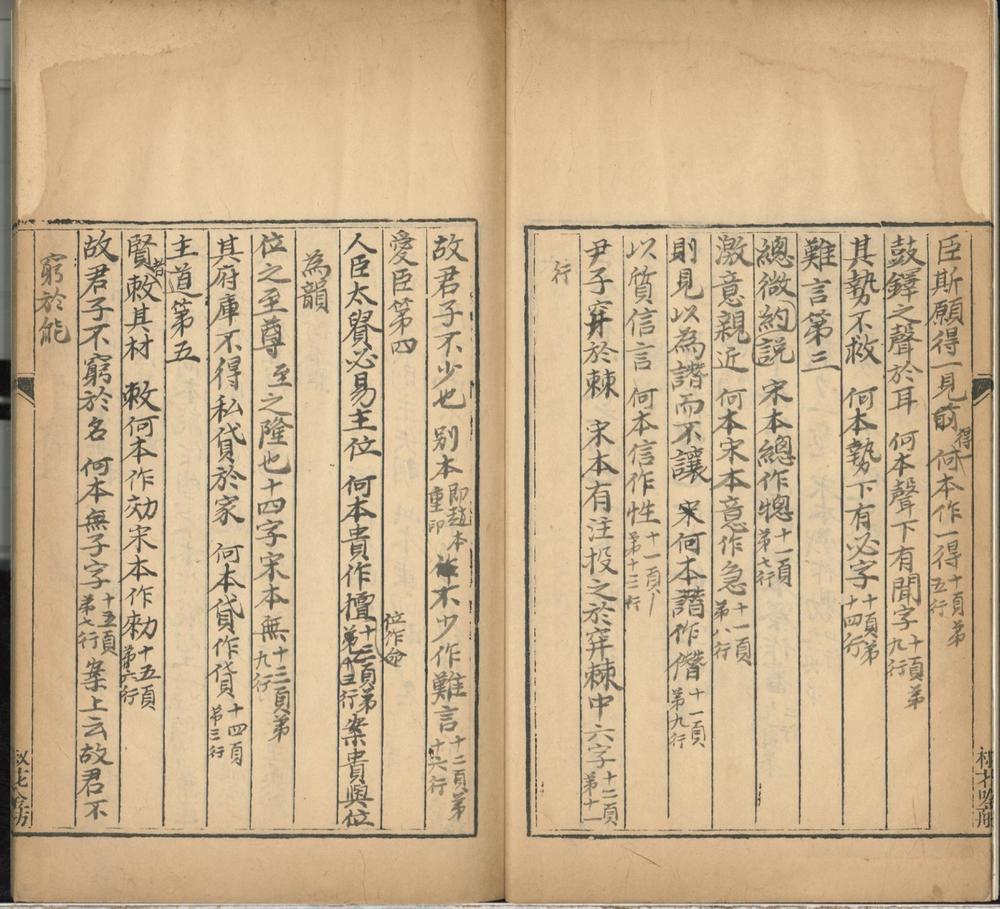 臣斯願得一見前 何本作一得十頁第五行
得一
鼓鐸之聲於耳 何本聲下有聞字十頁第九行
其勢不救 何本勢下有必字十頁第十四行
難言第三
總微約説 宋本總作牕十一頁第七行
激意親近 何本宋本意作急十一頁第八行
則見以為譖而不讓 宋何本譖作僭十一頁第九行
以質信言 何本信作性十一頁第十三行
尹子穽於棘 宋本有注投之於穽棘中六字十二頁第十一
行
故君子不少也 别本即趙本重即 不少作難言十二頁第十六行
愛臣第四
位作命
人臣太貴必易主位 何本貴作擅十三頁第行案貴與位
為韻
位之至尊 至之隆也十四字宋本無十三頁第九行
其府庫不得私貸於家 何本貸作貨十四頁第三行
主道第五
賢者敕其材 敕何本作効宋本作勑十五頁第六行
故君子不窮於名 何本無子字十五頁第七行案上云故君不
窮於能